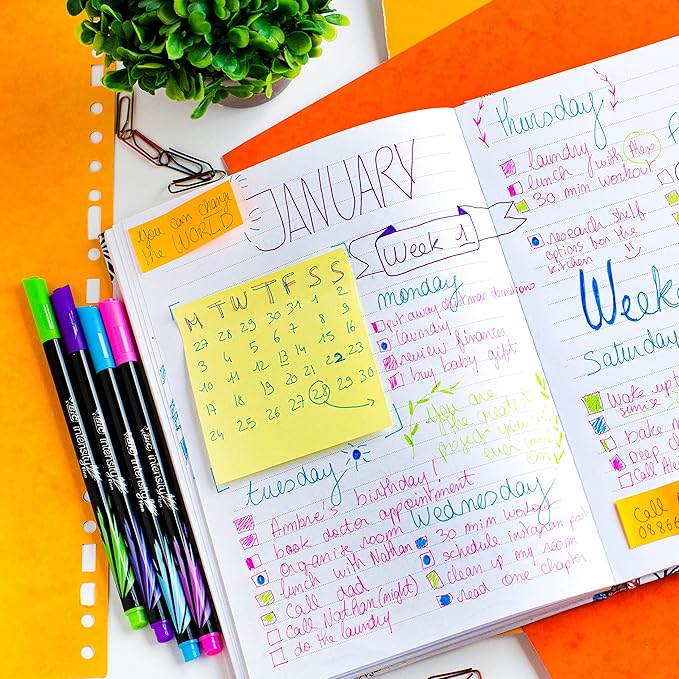 you can change
the WORLD
JANUARY
Week 1
M T W T F S S
27 28 29 30 31 1 2
3 4 5 6 7 8 9
10 11 12 13 14 15 16
17 18 19 20 21 22 23
24 25 26 27 28 29 30
monday
put away christmas decorations
laundry
review finances
buy baby gift
You are
the greatest
project you will
ever work on
tuesday
Ambre's birthday!
book doctor appointment
organise room
lunch with Nathan
call dad
call Nathan (night)
do the laundry
Wednesday
30 min workout
schedule instagram post
clean up my room
read one chapter
thursday
laundry
lunch with thea
30 min workout
research shelf
options for the
kitchen
Week
Saturday
wake up
sunrise
bake
Deep
Call
Call
08866
BIC intensity
BIC intensity
BIC intensity
BIC intensity